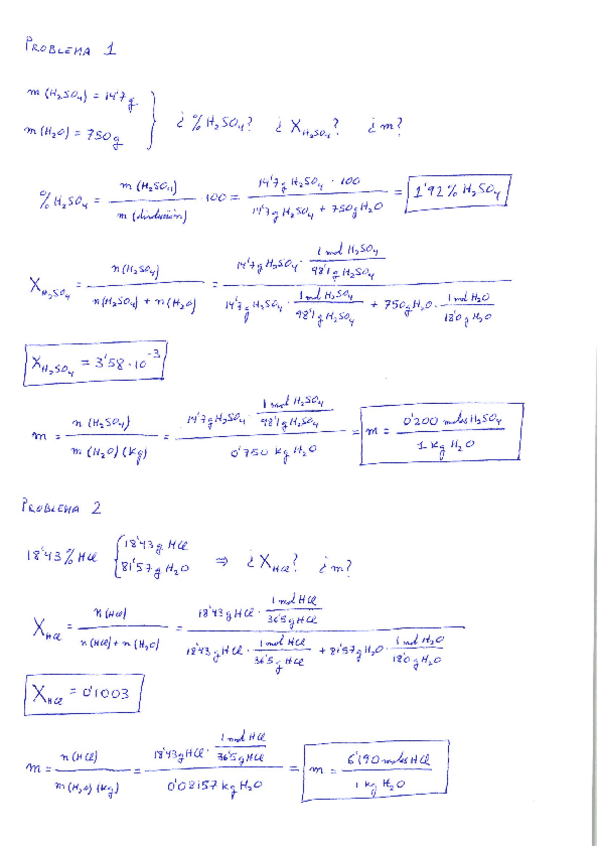 PROBLEMA 1
m (H₂SO₄) = 14'7 g
m (H₂O) = 750 g } ¿ % H₂SO₄? ¿ X_H₂SO₄? ¿ m?
% H₂SO₄ = m (H₂SO₄) / m (disolución) · 100 = 14'7 g H₂SO₄ · 100 / 14'7 g H₂SO₄ + 750 g H₂O = 1'92 % H₂SO₄
X_H₂SO₄ = n (H₂SO₄) / n (H₂SO₄) + n (H₂O) = 14'7 g H₂SO₄ · 1 mol H₂SO₄ / 98'1 g H₂SO₄ / 14'7 g H₂SO₄ · 1 mol H₂SO₄ / 98'1 g H₂SO₄ + 750 g H₂O · 1 mol H₂O / 18'0 g H₂O
X_H₂SO₄ = 3'58 · 10⁻³
m = n (H₂SO₄) / m (H₂O) (Kg) = 14'7 g H₂SO₄ · 1 mol H₂SO₄ / 98'1 g H₂SO₄ / 0'750 Kg H₂O = m = 0'200 moles H₂SO₄ / 1 Kg H₂O
PROBLEMA 2
18'43 % HCl { 18'43 g HCl
81'57 g H₂O ⇒ ¿ X_HCl? ¿ m?
X_HCl = n (HCl) / n (HCl) + n (H₂O) = 18'43 g HCl · 1 mol HCl / 36'5 g HCl / 18'43 g HCl · 1 mol HCl / 36'5 g HCl + 81'57 g H₂O · 1 mol H₂O / 18'0 g H₂O
X_HCl = 0'1003
m = n (HCl) / m (H₂O) (Kg) = 18'43 g HCl · 1 mol HCl / 36'5 g HCl / 0'08157 kg H₂O = m = 6'190 moles HCl / 1 kg H₂O